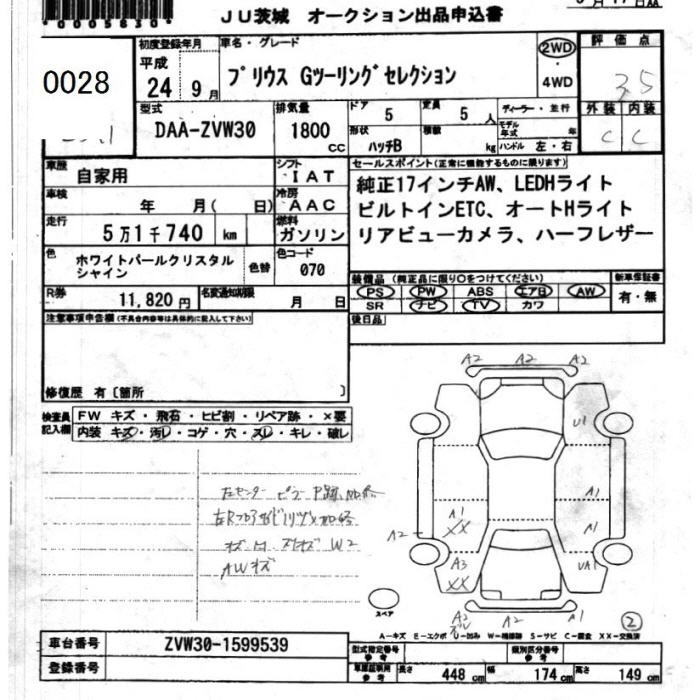 *00005830*
JU茨城 オークション出品申込書
0028
初度登録年月 車名・グレード 2WD 評価点
平成 24年 9月 プリウス Gツーリングセレクション ・ 4WD 3.5
型式 排気量 ドア 5 定員 5人 ディーラー・並行 外装 内装
DAA-ZVW30 1800cc 形状 ハッチB 積数 kg モデル年式 年 ハンドル 左・右 C C
車歴 自家用 シフト IAT セールスポイント(正常に機能するものに限ります)
車検 年 月( 日) 冷房 AAC 純正17インチAW、LEDHライト
走行 5万1千740km 燃料 ガソリン ビルトインETC、オートHライト
リアビューカメラ、ハーフレザー
色 ホワイトパールクリスタルシャイン 色替 色コード 070
装備品(純正品に限り○をつけてください) 新車保証書
R券 11,820円 名変通知期限 月 日 PS PW ABS エアB AW 有・無
SR ナビ TV カワ
注意事項申告欄(不具合内容等は具体的に記入して下さい) 後日品
修復歴 有〔箇所 〕
検査員記入欄 FW キズ・飛石・ヒビ割・リペア跡・×要
内装 キズ・汚レ・コゲ・穴・スレ・キレ・破レ
A2 A2 A2
U1
A1
A1 XX A1
A2
A3 XX UA1
AWキズ
スペア
A2 A2 A1
②
A-キズ E-エクボ U-凹み W-補修跡 S-サビ C-腐食 XX-交換済
車台番号 ZVW30-1599539 型式指定番号 参考 類別区分番号 参考
登録番号 車庫証明用 参考 長さ 448cm 幅 174cm 高さ 149cm